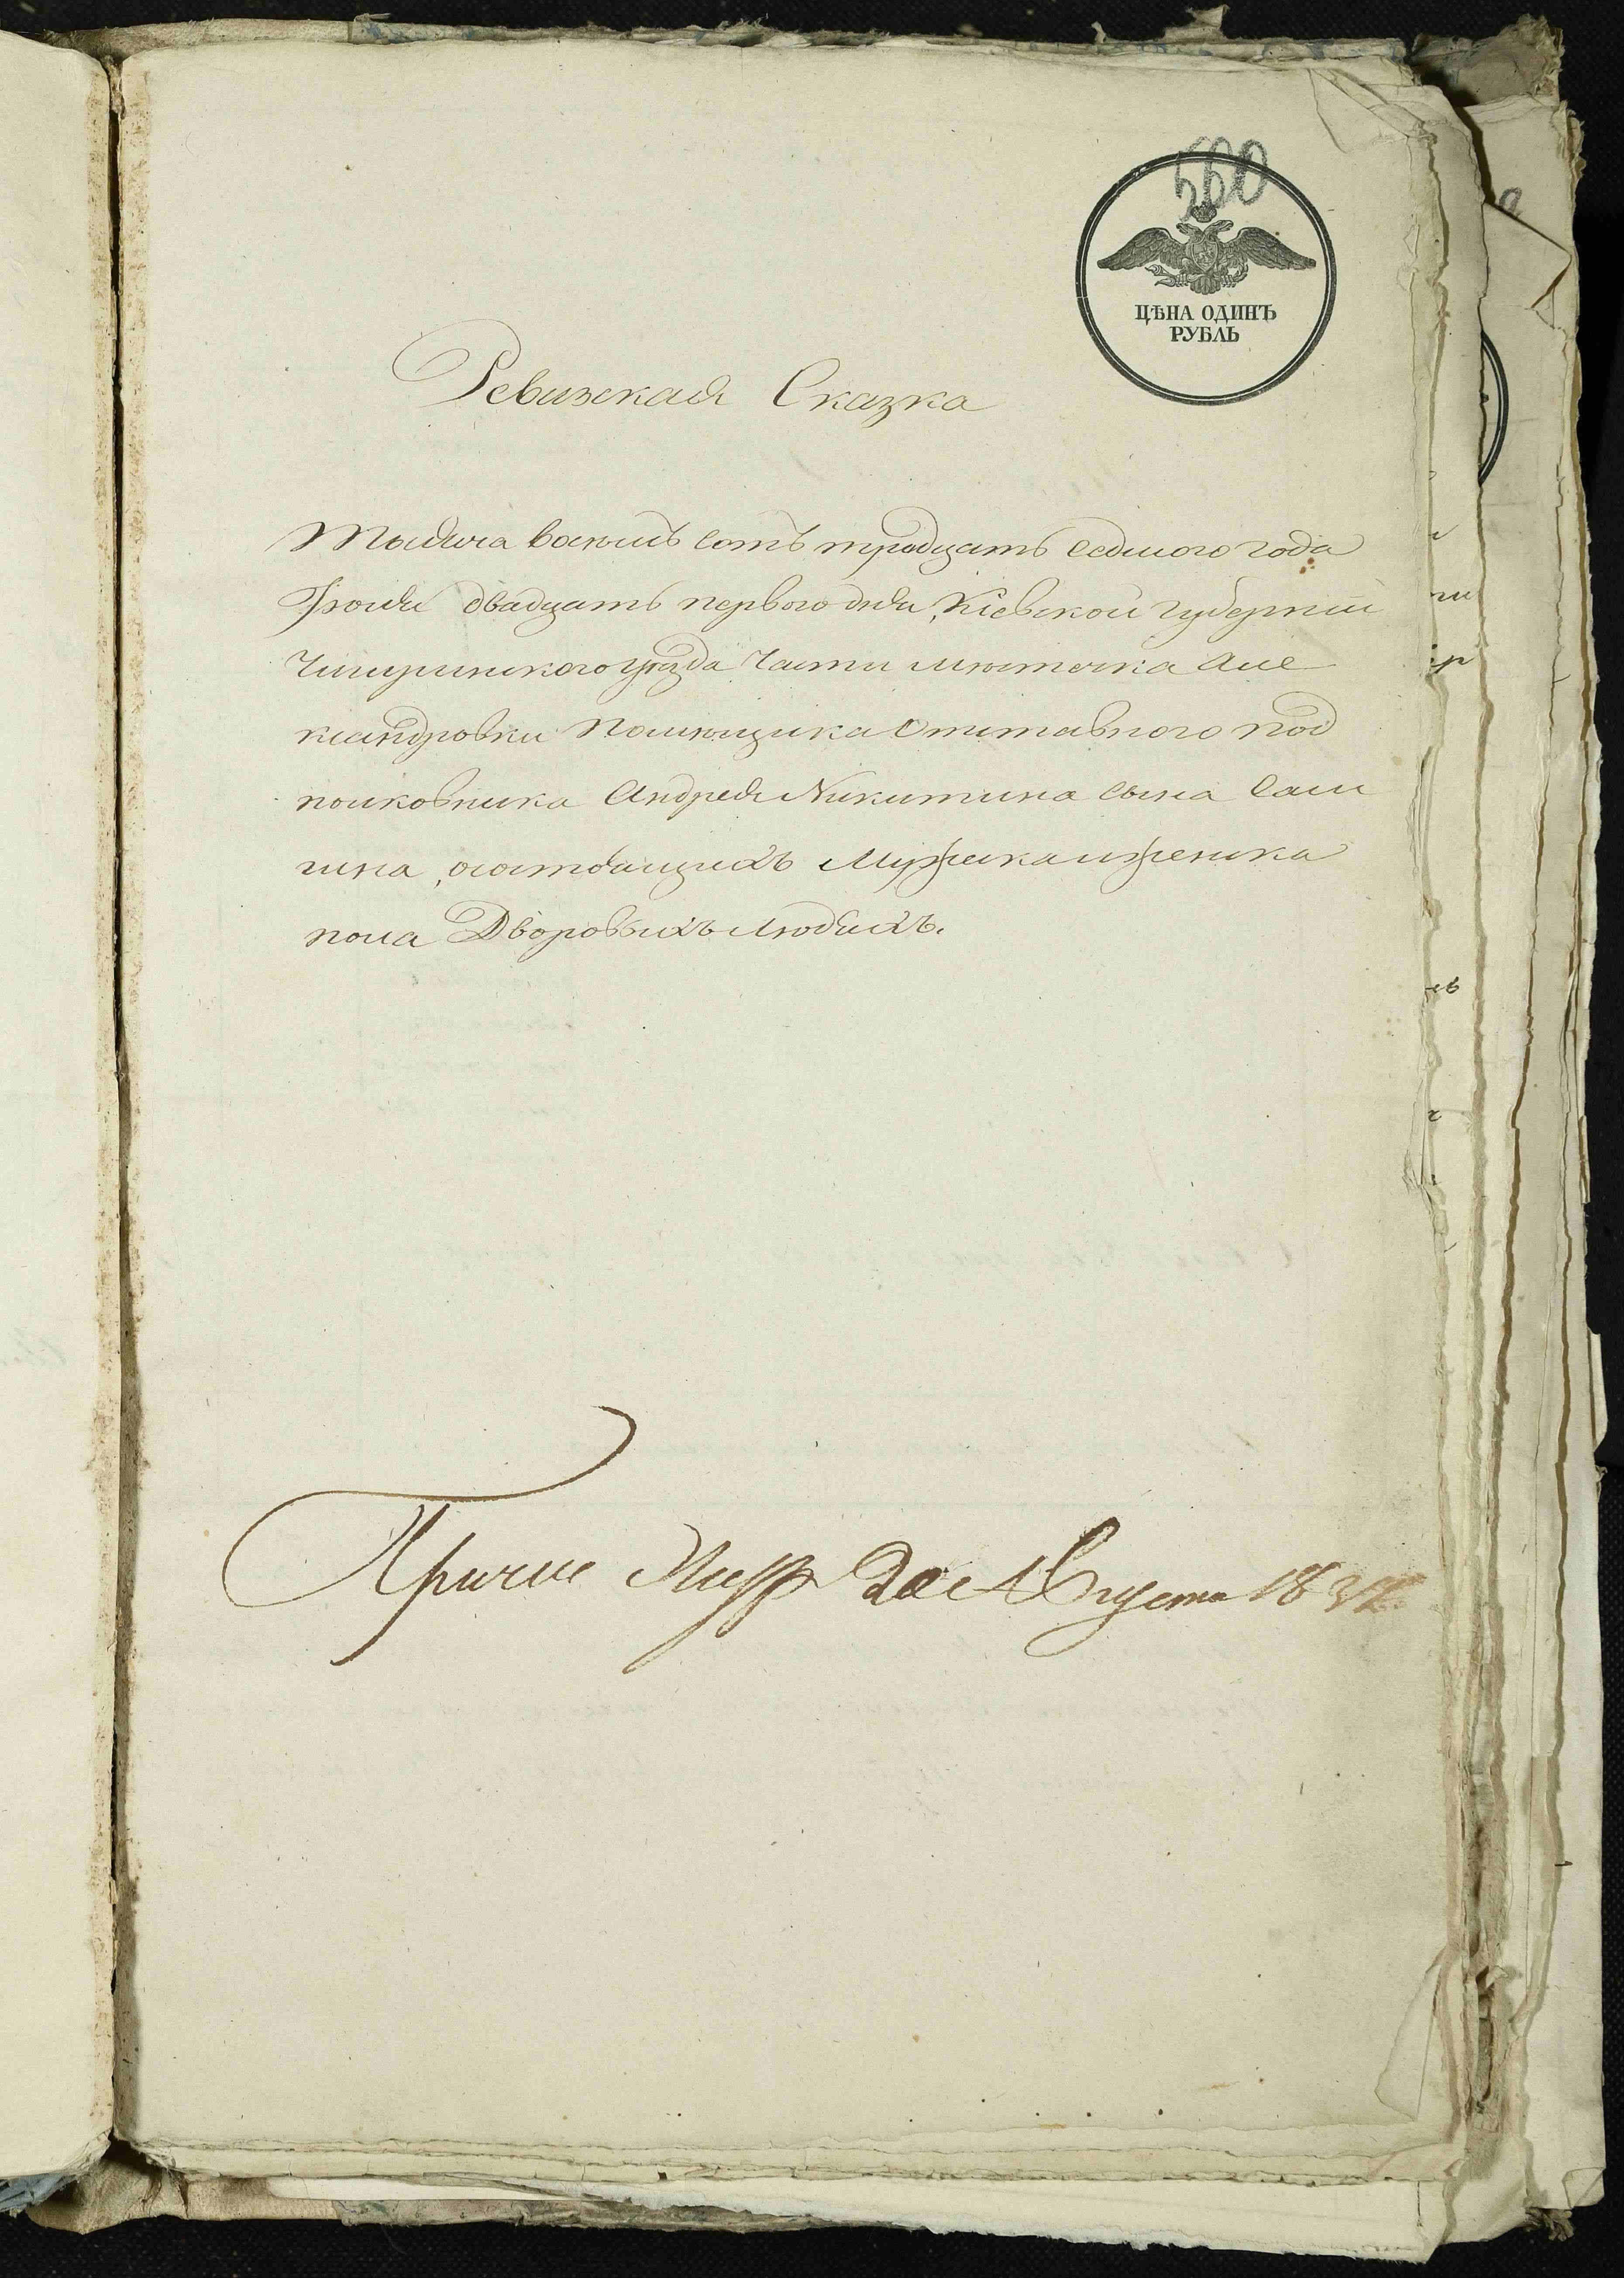 560
ЦѢНА ОДИНЪ
РУБЛЬ
Ревизская Сказка
Тысяча восемь сотъ тридцать седмого года
двадцать первого дня, Кіевской губерніи
Чигиринского уѣзда части мѣстечка Але
ксандровки помѣщика Отставного под
полковника Андрея Никитина сына
состоящихъ Мужеска и женска
пола Дворовыхъ людяхъ.
Августа